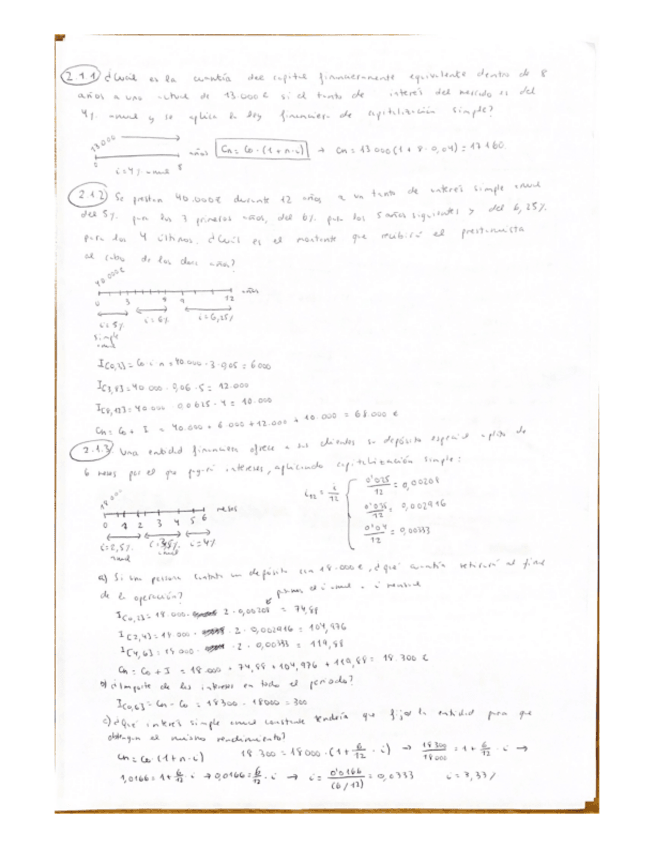 2.1.1 ¿Cuál es la cuantía del capital financieramente equivalente dentro de 8
años a uno actual de 13.000€ si el tanto de interés del mercado es del
4% anual y se aplica la ley financiera de capitalización simple?
13.000
0 8 años Cn = Co · (1+n·i) → Cn = 13.000 (1 + 8 · 0,04) = 17.160
i = 4% anual
2.1.2 Se prestan 40.000€ durante 12 años a un tanto de interés simple anual
del 5% para los 3 primeros años, del 6% para los 5 años siguientes y del 6,25%
para los 4 últimos. ¿Cuál es el montante que recibirá el prestamista
al cabo de los doce años?
40.000€
0 3 8 9 12 años
i = 5% i = 6% i = 6,25%
simple
anual
I(0,3) = Co · i · n = 40.000 · 3 · 0,05 = 6000
I(3,8) = 40.000 · 0,06 · 5 = 12.000
I(8,12) = 40.000 · 0,0625 · 4 = 10.000
Cn = Co + I = 40.000 + 6.000 + 12.000 + 10.000 = 68.000 €
2.1.3 Una entidad financiera ofrece a sus clientes un depósito especial a plazo de
6 meses por el que pagará intereses, aplicando capitalización simple:
18.000
0 1 2 3 4 5 6 meses
i = 2,5% i = 3,5% i = 4%
anual anual
i12 = i/12
0'025/12 = 0,00208
0'035/12 = 0,002916
0'04/12 = 0,00333
a) Si una persona contrata un depósito con 18.000€, ¿qué cuantía retirará al final
de la operación? pasamos el i anual a i mensual
I(0,2) = 18.000 · 2 · 0,00208 = 74,88
I(2,4) = 18.000 · 2 · 0,002916 = 104,976
I(4,6) = 18.000 · 2 · 0,00333 = 119,88
Cn = Co + I = 18.000 + 74,88 + 104,976 + 119,88 = 18.300 €
b) ¿Importe de los intereses en todo el periodo?
I(0,6) = Cn - Co = 18300 - 18000 = 300
c) ¿Qué interés simple anual constante tendría que fijar la entidad para que
obtengan el mismo rendimiento?
Cn = Co (1+n·i) 18 300 = 18000 · (1 + 6/12 · i) → 18300/18000 = 1 + 6/12 · i →
1,0166 = 1 + 6/12 · i → 0,0166 = 6/12 · i → i = 0'0166/(6/12) = 0,0333 i = 3,33%